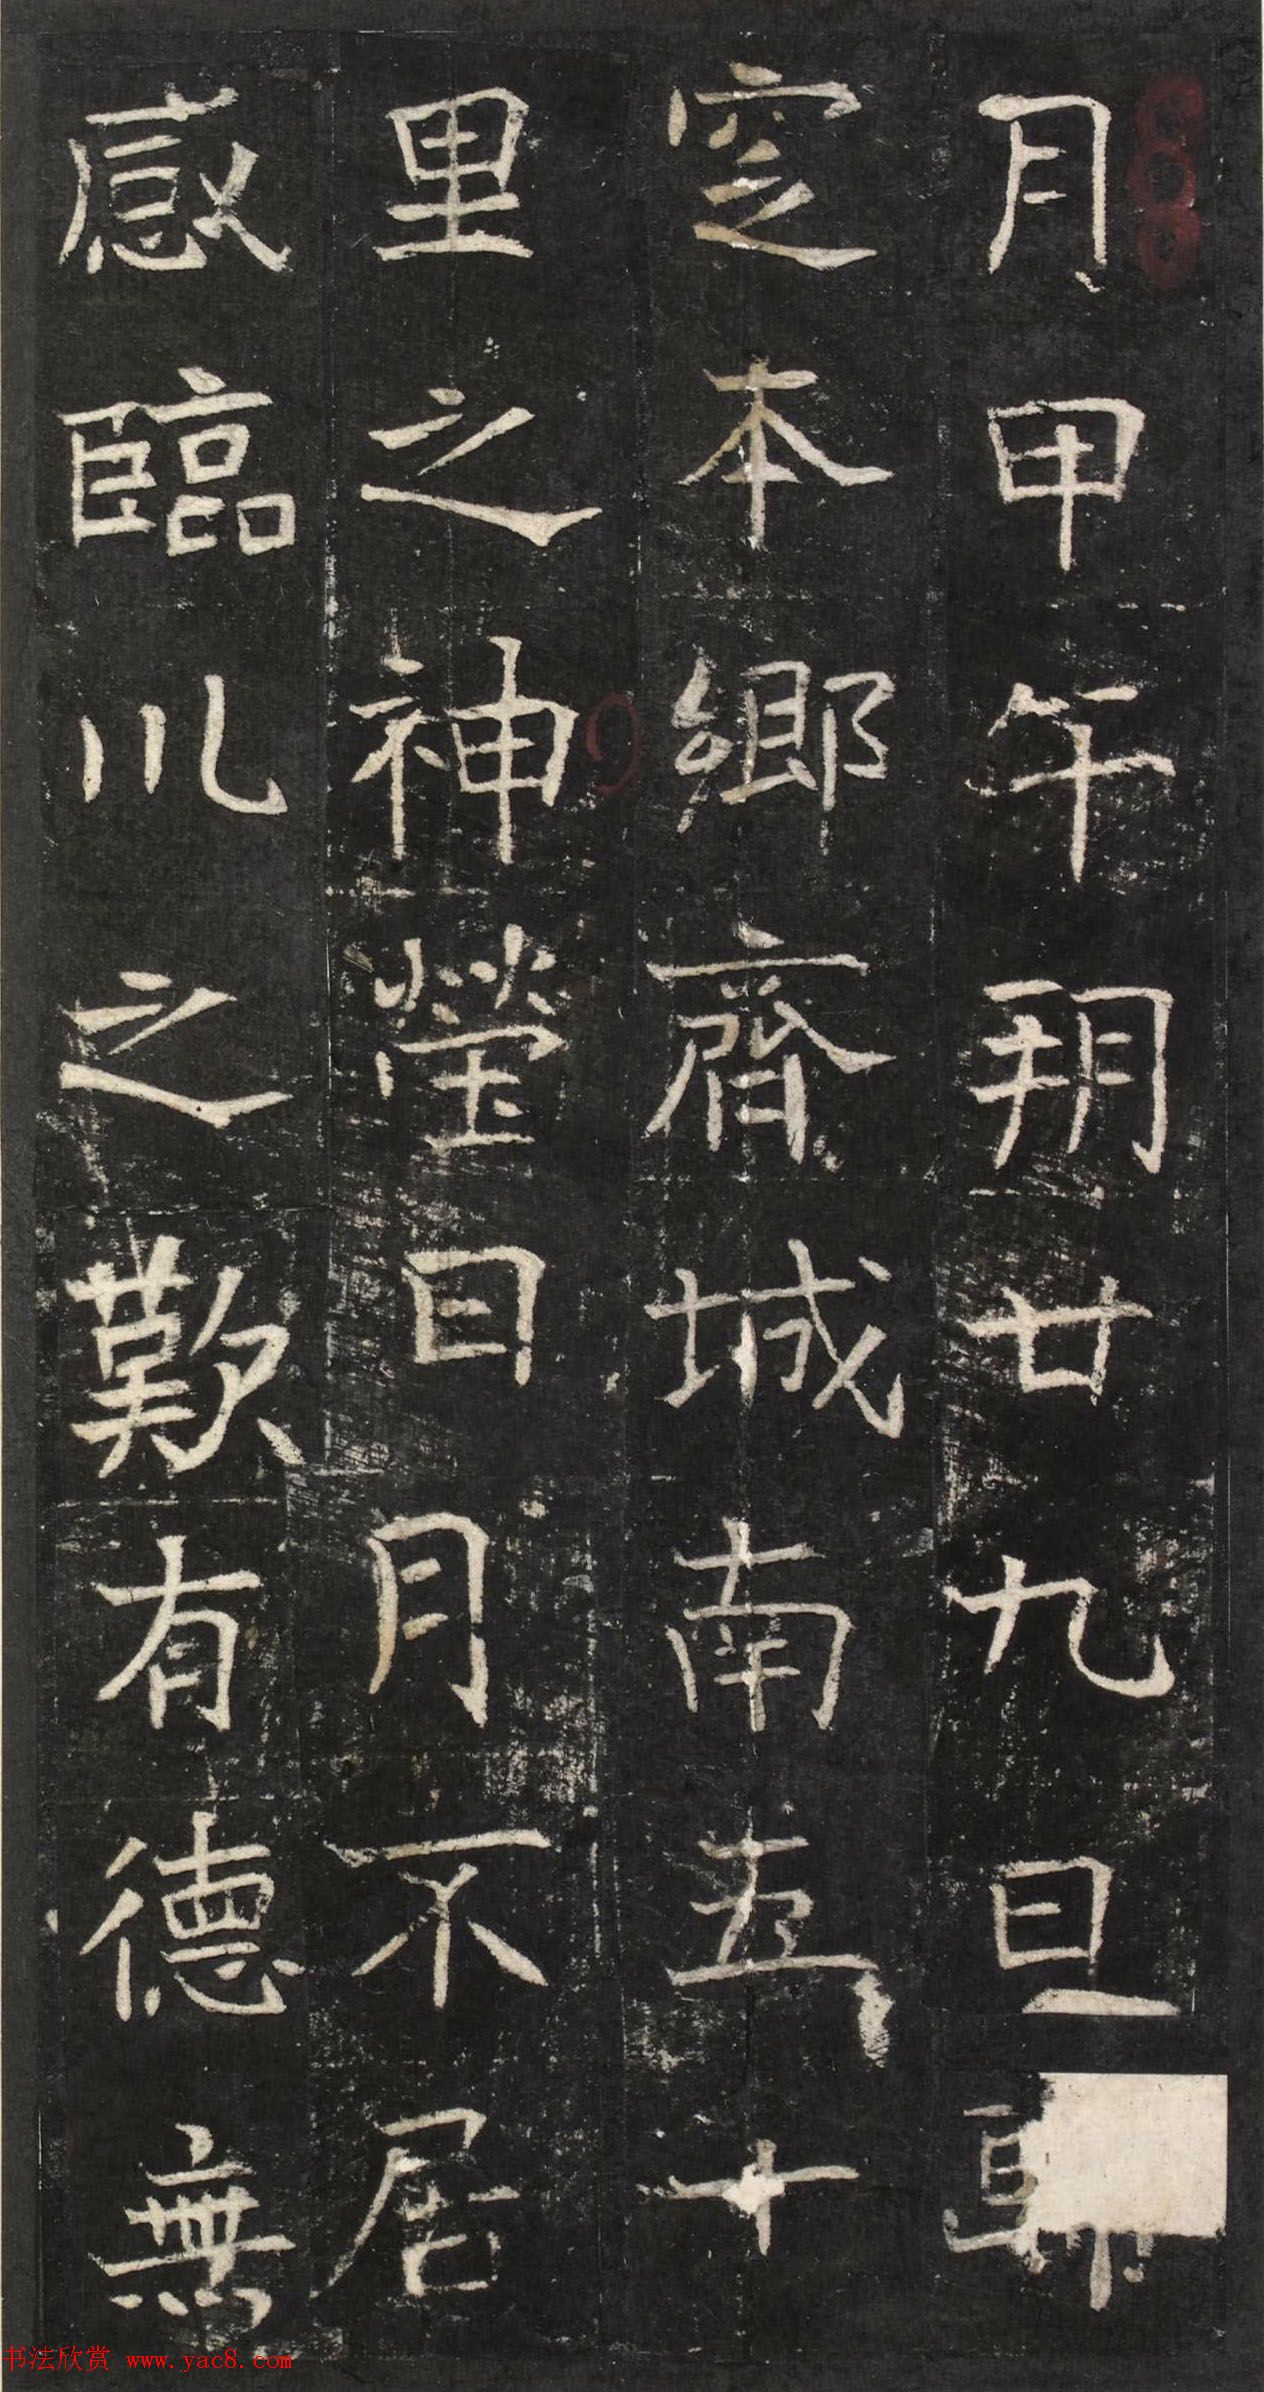 月甲午朔廿九旦
窆本鄉齊城南五十
里之神塋日月不居
感臨川之歎有德無
书法欣赏 www.yac8.com